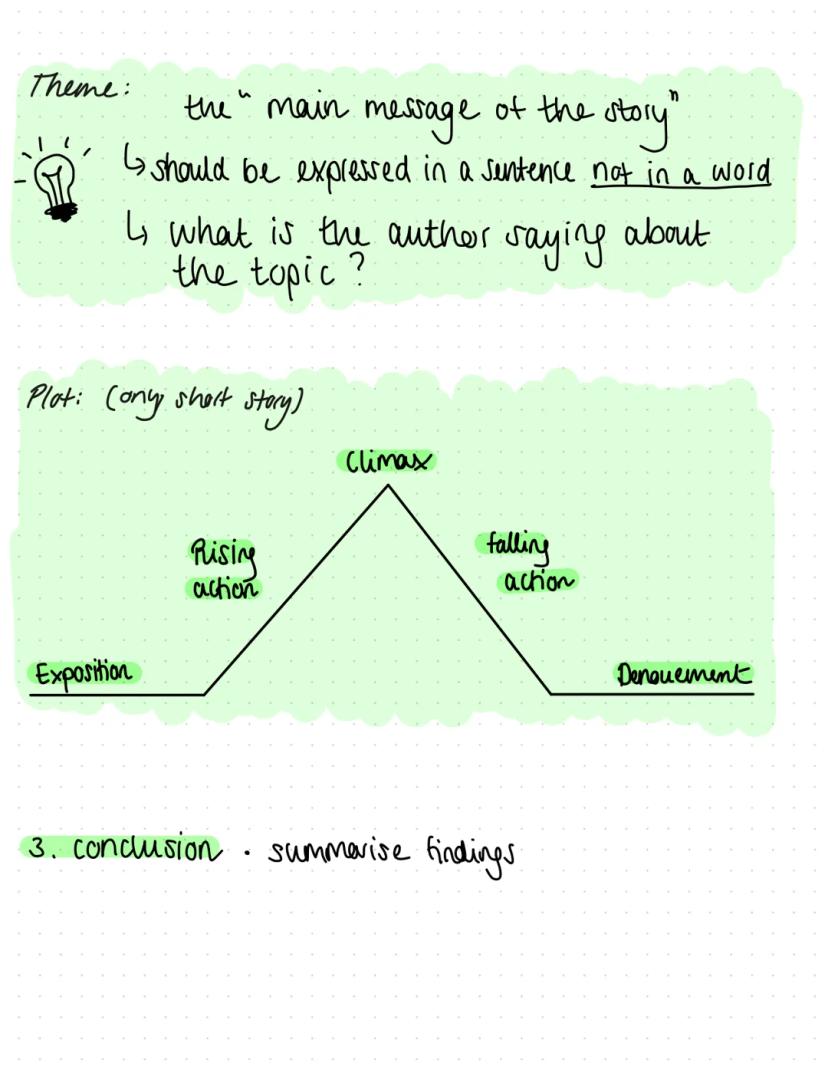 Theme:
the "main message of the story"
↳ should be expressed in a sentence not in a word
↳ what is the author saying about
the topic?
Plot: (only short story)
Climax
Rising
action
falling
action
Exposition
Denouement
3. conclusion · summarise findings